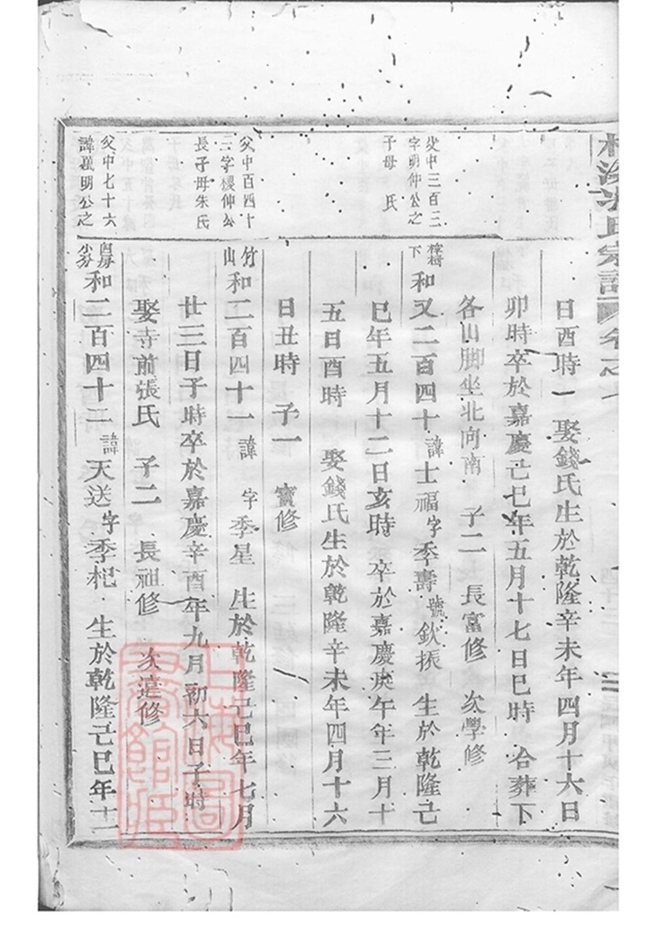 日酉時 娶錢氏生於乾隆辛未年四月十六日
卯時卒於嘉慶己巳年五月十七日巳時 合葬下
各山脚坐北向南 子二 長富修 次學修
父中三百三
字明仲公
子母 氏
下
和又二百四十 諱士福 字季壽 號欽振 生於乾隆己
巳年五月十二日亥時 卒於嘉慶庚午年三月十
五日酉時 娶錢氏生於乾隆辛未年四月十六
日丑時 子一 修
父中百四十
三字 仲公
長子母朱氏
竹山
和二百四十一 諱 字季星 生於乾隆己巳年七月
廿三日子時卒於嘉慶辛酉年九月初六日子時
娶寺前張氏 子二 長祖修 次達修
父中七十六
諱 明公之
和二百四十二 諱天送 字季杞 生於乾隆己巳年十二
氏宗譜 卷之